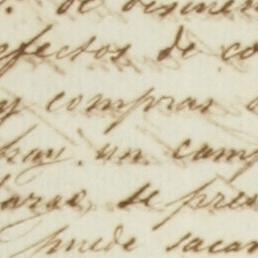 de disimen
efectos de co
y compras
hay un camp
bargo, se pres
puede sacar